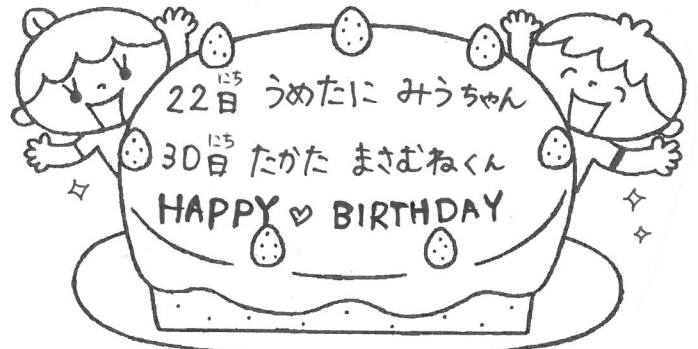 22日 うめたに みうちゃん
30日 たかた まさむねくん
HAPPY♡BIRTHDAY